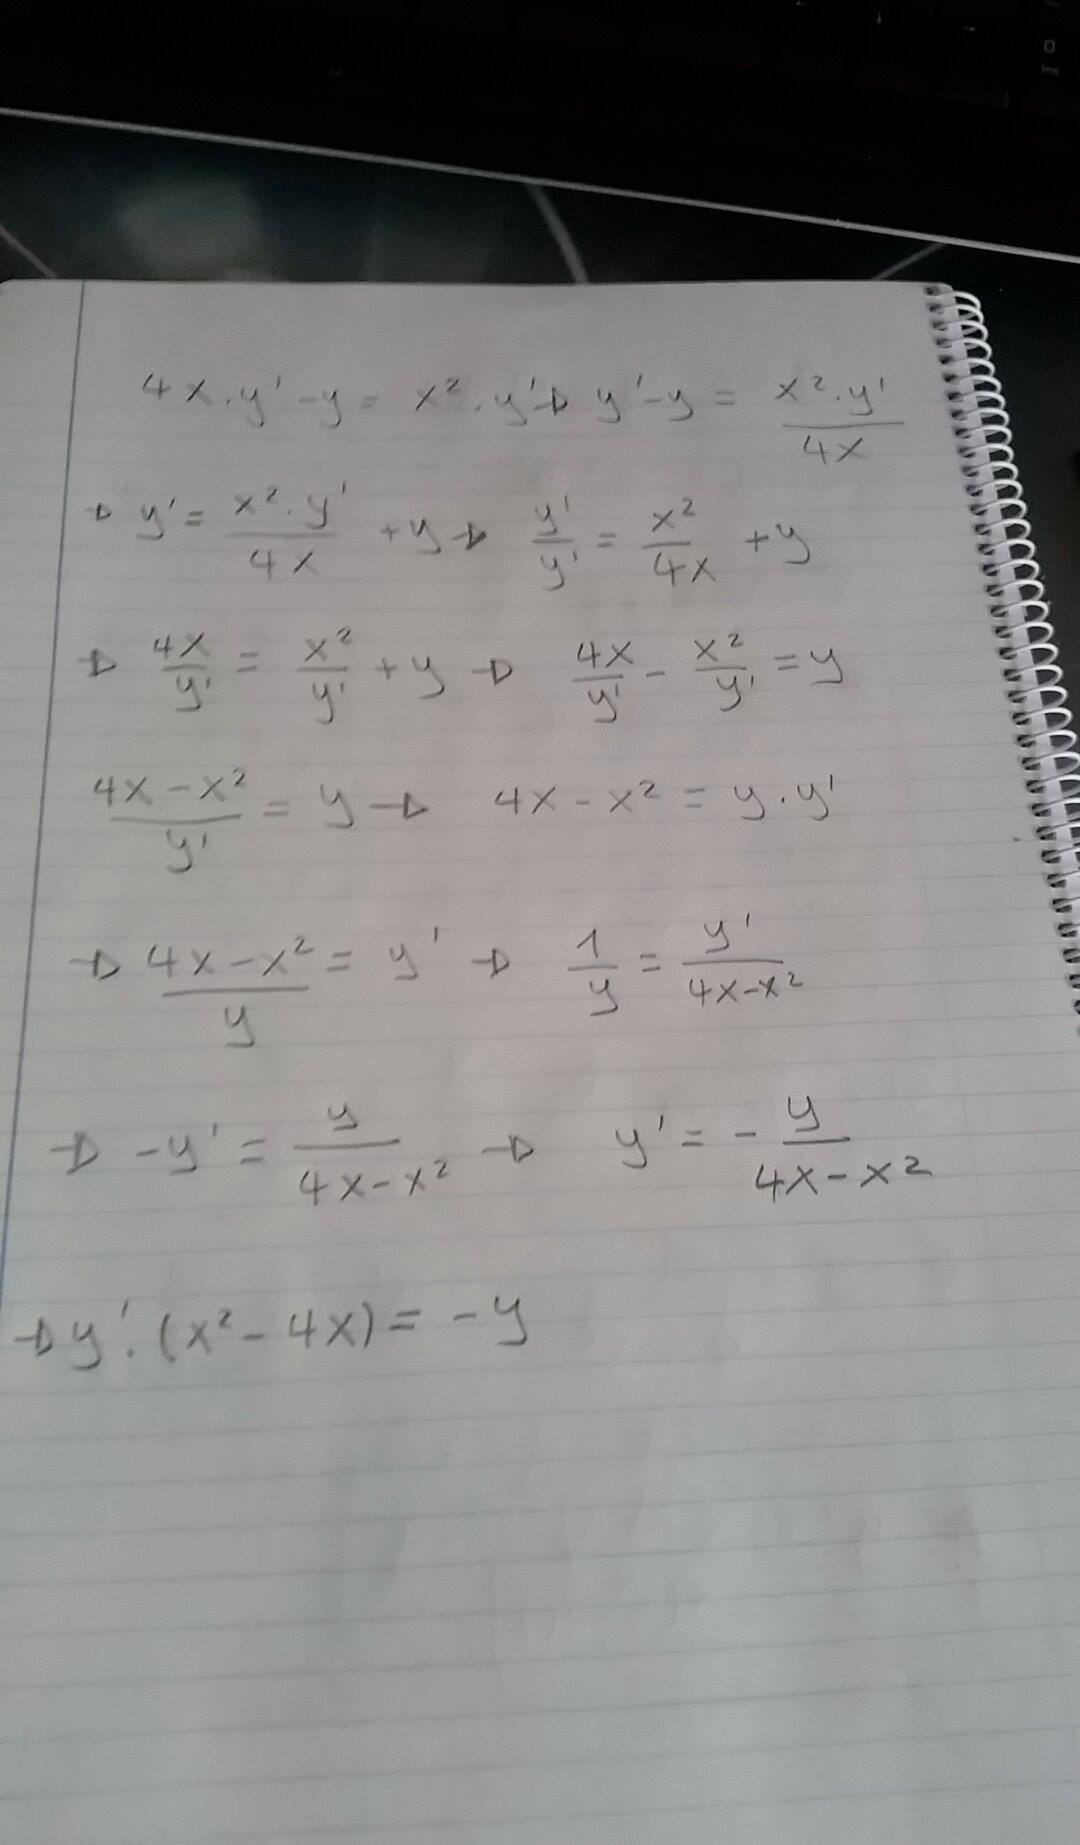 4x.y' -y = x².y' → y'-y = x².y'/4x
→ y' = x².y'/4x +y → y'/y' = x²/4x +y
→ 4x/y' = x²/y' + y → 4x/y' - x²/y' = y
4x-x²/y' = y → 4x-x² = y.y'
→ 4x-x²/y = y' → 1/y = y'/4x-x²
→ -y' = y/4x-x² → y' = - y/4x-x²
→ y'.(x²-4x) = -y